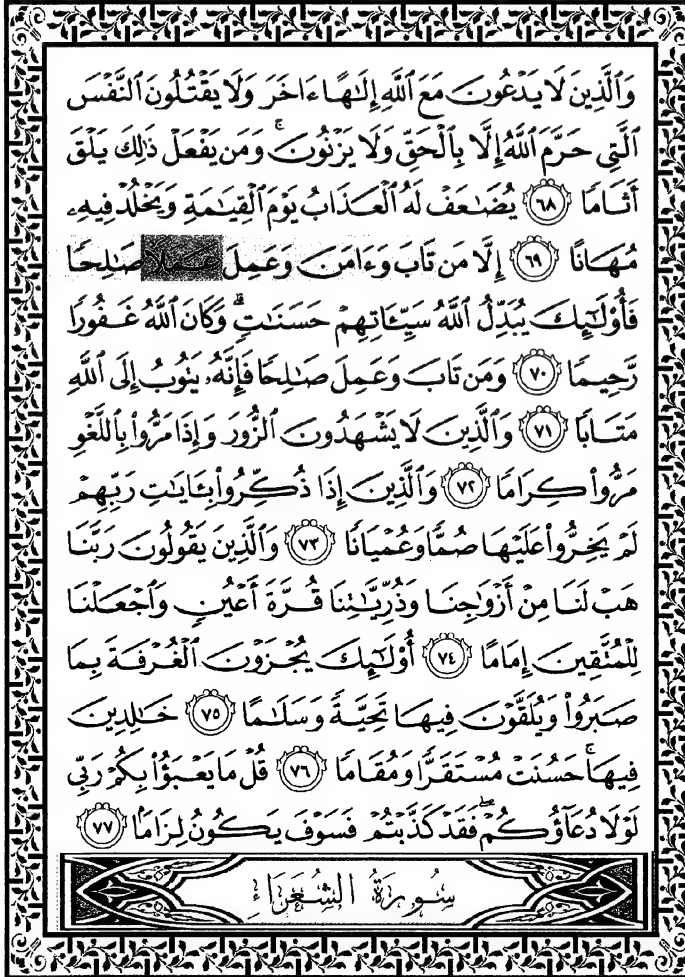 وَٱلَّذِينَ لَا يَدْعُونَ مَعَ ٱللَّهِ إِلَٰهًا ءَاخَرَ وَلَا يَقْتُلُونَ ٱلنَّفْسَ
ٱلَّتِى حَرَّمَ ٱللَّهُ إِلَّا بِٱلْحَقِّ وَلَا يَزْنُونَ ۚ وَمَن يَفْعَلْ ذَٰلِكَ يَلْقَ
أَثَامًا ٦٨ يُضَٰعَفْ لَهُ ٱلْعَذَابُ يَوْمَ ٱلْقِيَٰمَةِ وَيَخْلُدْ فِيهِۦ
مُهَانًا ٦٩ إِلَّا مَن تَابَ وَءَامَنَ وَعَمِلَ عَمَلًا صَٰلِحًا
فَأُو۟لَٰٓئِكَ يُبَدِّلُ ٱللَّهُ سَيِّـَٔاتِهِمْ حَسَنَٰتٍ ۗ وَكَانَ ٱللَّهُ غَفُورًا
رَّحِيمًا ٧٠ وَمَن تَابَ وَعَمِلَ صَٰلِحًا فَإِنَّهُۥ يَتُوبُ إِلَى ٱللَّهِ
مَتَابًا ٧١ وَٱلَّذِينَ لَا يَشْهَدُونَ ٱلزُّورَ وَإِذَا مَرُّوا۟ بِٱللَّغْوِ
مَرُّوا۟ كِرَامًا ٧٢ وَٱلَّذِينَ إِذَا ذُكِّرُوا۟ بِـَٔايَٰتِ رَبِّهِمْ
لَمْ يَخِرُّوا۟ عَلَيْهَا صُمًّا وَعُمْيَانًا ٧٣ وَٱلَّذِينَ يَقُولُونَ رَبَّنَا
هَبْ لَنَا مِنْ أَزْوَٰجِنَا وَذُرِّيَّٰتِنَا قُرَّةَ أَعْيُنٍ وَٱجْعَلْنَا
لِلْمُتَّقِينَ إِمَامًا ٧٤ أُو۟لَٰٓئِكَ يُجْزَوْنَ ٱلْغُرْفَةَ بِمَا
صَبَرُوا۟ وَيُلَقَّوْنَ فِيهَا تَحِيَّةً وَسَلَٰمًا ٧٥ خَٰلِدِينَ
فِيهَا ۚ حَسُنَتْ مُسْتَقَرًّا وَمُقَامًا ٧٦ قُلْ مَا يَعْبَؤُا۟ بِكُمْ رَبِّى
لَوْلَا دُعَآؤُكُمْ ۖ فَقَدْ كَذَّبْتُمْ فَسَوْفَ يَكُونُ لِزَامًۢا ٧٧
سُورَةُ الشُّعَرَاءِ